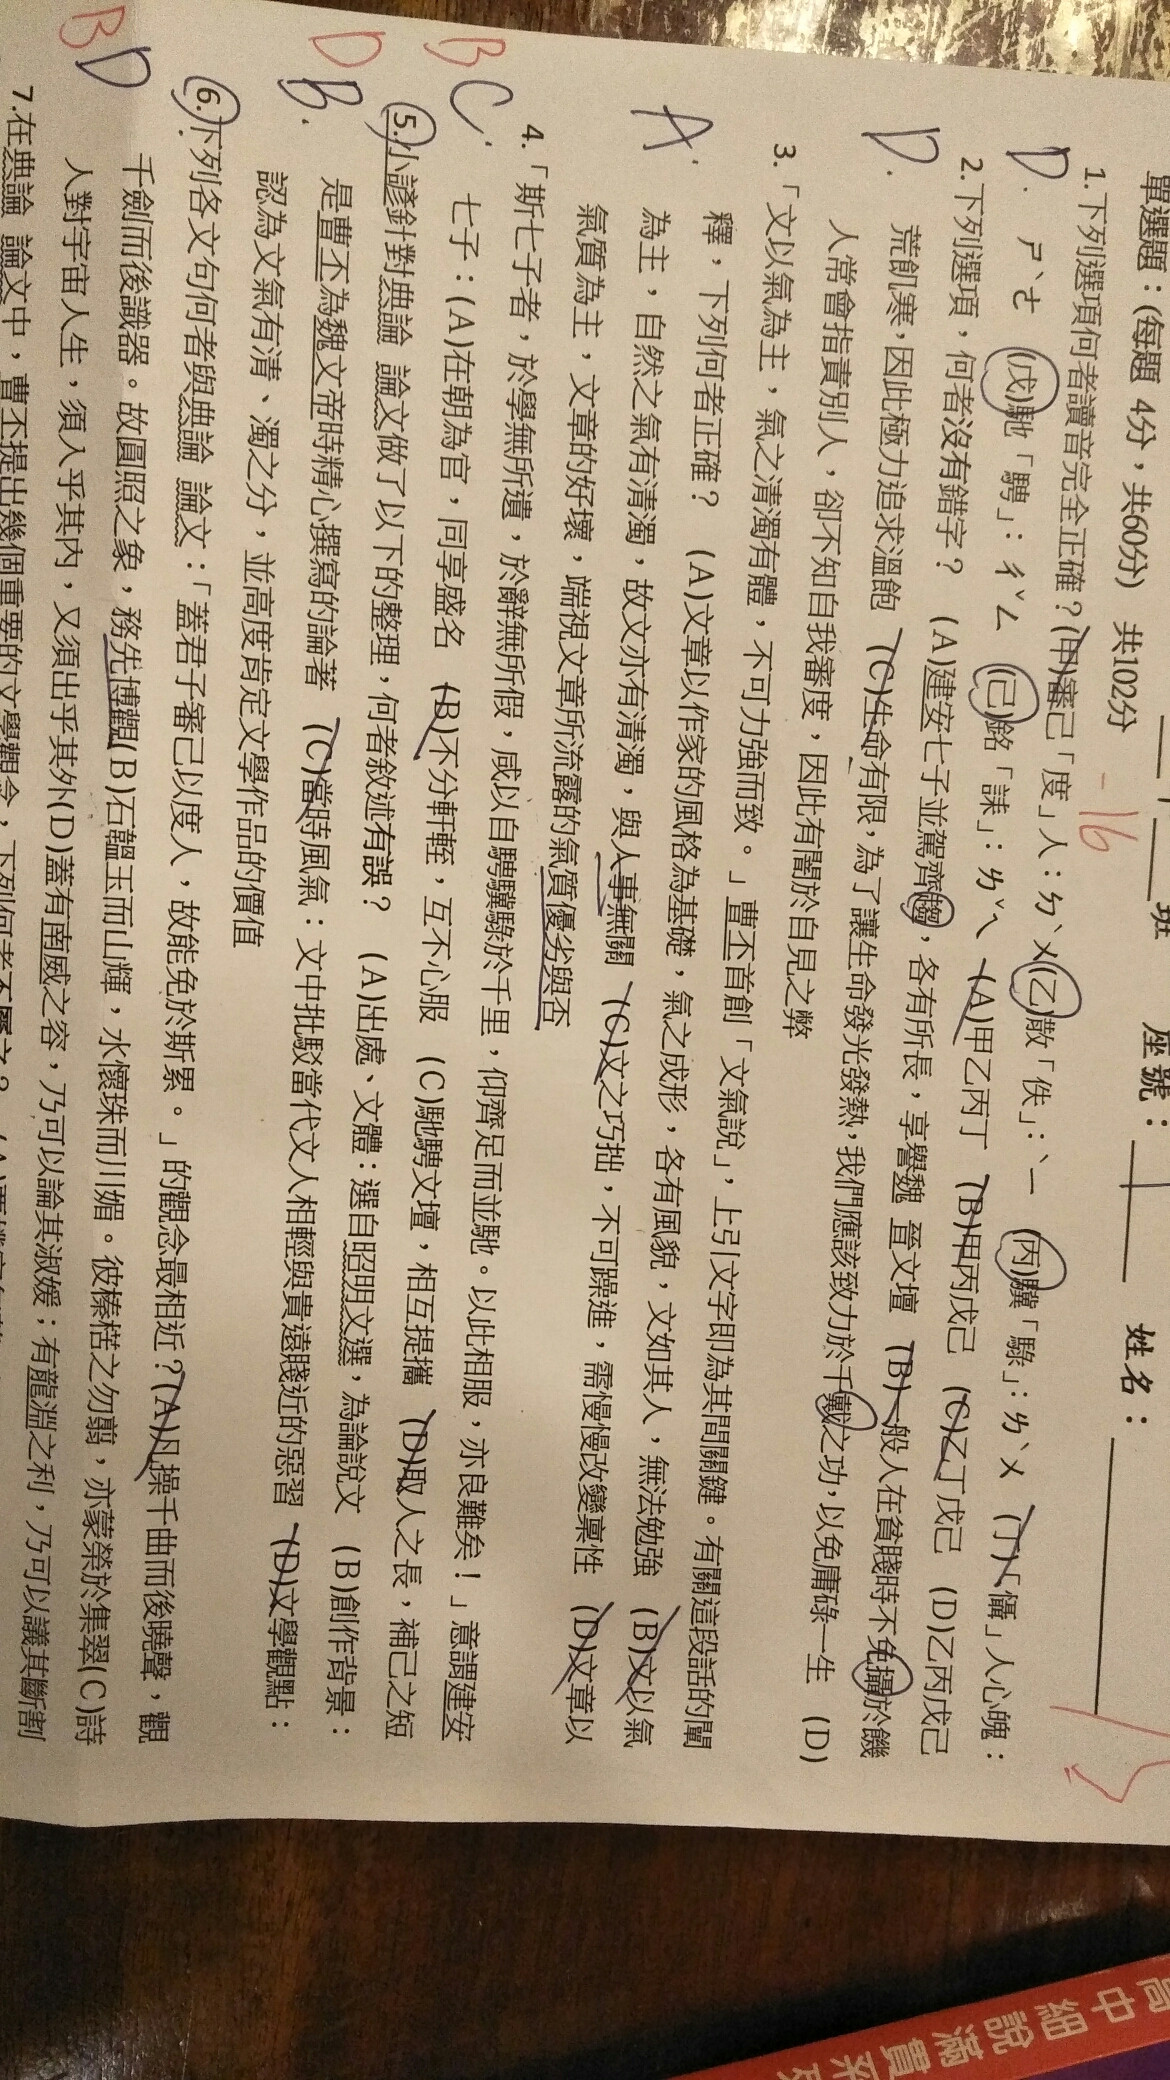 單選題：(每題 4分，共60分) 共102分 班 座號： 姓名：
-16
1.下列選項何者讀音完全正確？(甲)審己「度」人：ㄉˋㄨ(乙)散「佚」：ˋㄧ (丙)驥「騄」：ㄌˋㄨ (丁)「懾」人心魄：
D. ㄕˋㄜ (戊)馳「騁」：ㄔˇㄥ (己)銘「誄」：ㄌˇㄟ (A)甲乙丙丁 (B)甲丙戊己 (C)乙丁戊己 (D)乙丙戊己
2.下列選項，何者沒有錯字？ (A)建安七子並駕齊趨，各有所長，享譽魏 晉文壇 (B)一般人在貧賤時不免攝於饑
D. 荒飢寒，因此極力追求溫飽 (C)生命有限，為了讓生命發光發熱，我們應該致力於千戴之功，以免庸碌一生 (D)
人常會指責別人，卻不知自我審度，因此有闇於自見之弊
3.「文以氣為主，氣之清濁有體，不可力強而致。」曹丕首創「文氣說」，上引文字即為其間關鍵。有關這段話的闡
A. 釋，下列何者正確？ (A)文章以作家的風格為基礎，氣之成形，各有風貌，文如其人，無法勉強 (B)文以氣
為主，自然之氣有清濁，故文亦有清濁，與人事無關 (C)文之巧拙，不可躁進，需慢慢改變稟性 (D)文章以
氣質為主，文章的好壞，端視文章所流露的氣質優劣與否
4.「斯七子者，於學無所遺，於辭無所假，咸以自騁驥騄於千里，仰齊足而並馳。以此相服，亦良難矣！」意謂建安
B C. 七子：(A)在朝為官，同享盛名 (B)不分軒輊，互不心服 (C)馳騁文壇，相互提攜 (D)取人之長，補己之短
5.小諺針對典論 論文做了以下的整理，何者敘述有誤？ (A)出處、文體：選自昭明文選，為論說文 (B)創作背景：
D B. 是曹丕為魏文帝時精心撰寫的論著 (C)當時風氣：文中批駁當代文人相輕與貴遠賤近的惡習 (D)文學觀點：
認為文氣有清、濁之分，並高度肯定文學作品的價值
6.下列各文句何者與典論 論文：「蓋君子審己以度人，故能免於斯累。」的觀念最相近？(A)凡操千曲而後曉聲，觀
B D 千劍而後識器。故圓照之象，務先博觀(B)石韞玉而山輝，水懷珠而川媚。彼榛楛之勿翦，亦蒙榮於集翠(C)詩
人對宇宙人生，須入乎其內，又須出乎其外(D)蓋有南威之容，乃可以論其淑媛；有龍淵之利，乃可以議其斷割
7.在典論 論文中，曹丕提出幾個重要的文學觀念，下列何者不屬之？
高中細說滿貫系列